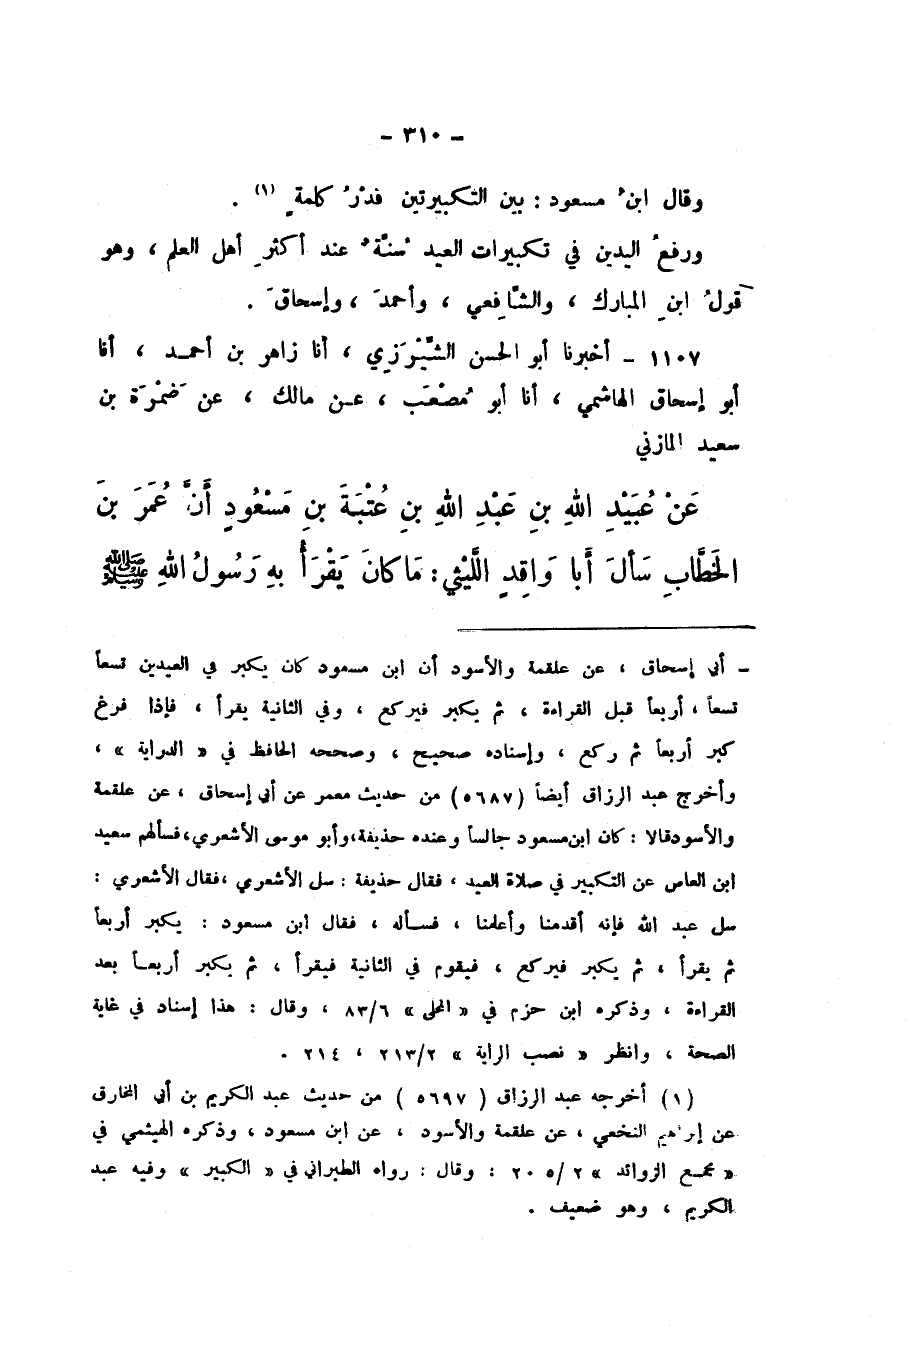 - ٣١٠ -
وقال ابنُ مسعود : بين التكبيرتين قدْرُ كلمةٍ (١) .
ورفعُ اليدين في تكبيرات العيد سُنَّةٌ عند أكثرِ أهل العلم ، وهو
قولُ ابنِ المبارك ، والشَّافعي ، وأحمدَ ، وإسحاقَ .
١١٠٧ - أخبرنا أبو الحسن الشِّيْرَزِي ، أنا زاهر بن أحمد ، أنا
أبو إسحاق الهاشمي ، أنا أبو مُصْعَب ، عن مالك ، عن ضَمْرَة بن
سعيد المازني
عَنْ عُبَيْدِ اللهِ بنِ عَبْدِ اللهِ بنِ عُتْبَةَ بنِ مَسْعُودٍ أَنَّ عُمَرَ بنَ
الخَطَّابِ سَأَلَ أَبا وَاقِدٍ اللَّيْثِي : مَا كانَ يَقْرَأُ بهِ رَسُولُ اللهِ ﷺ
- أبي إسحاق ، عن علقمة والأسود أن ابن مسعود كان يكبر في العيدين تسعاً
تسعاً ، أربعاً قبل القراءة ، ثم يكبر فيركع ، وفي الثانية يقرأ ، فإذا فرغ
كبر أربعاً ثم ركع ، وإسناده صحيح ، وصححه الحافظ في « الدراية » ،
وأخرج عبد الرزاق أيضاً (٥٦٨٧) من حديث معمر عن أبي إسحاق ، عن علقمة
والأسود قالا : كان ابن مسعود جالساً وعنده حذيفة، وأبو موسى الأشعري، فسألهم سعيد
ابن العاص عن التكبير في صلاة العيد ، فقال حذيفة : سل الأشعري ، فقال الأشعري :
سل عبد الله فإنه أقدمنا وأعلمنا ، فسأله ، فقال ابن مسعود : يكبر أربعاً
ثم يقرأ ، ثم يكبر فيركع ، فيقوم في الثانية فيقرأ ، ثم يكبر أربعاً بعد
القراءة ، وذكره ابن حزم في « المحلى » ٨٣/٦ ، وقال : هذا إسناد في غاية
الصحة ، وانظر « نصب الراية » ٢١٣/٢ ، ٢١٤ .
(١) أخرجه عبد الرزاق ( ٥٦٩٧ ) من حديث عبد الكريم بن أبي المخارق
عن إبراهيم النخعي ، عن علقمة والأسود ، عن ابن مسعود ، وذكره الهيثمي في
« مجمع الزوائد » ٢ / ٢٠٥ : وقال : رواه الطبراني في « الكبير » وفيه عبد
الكريم ، وهو ضعيف .